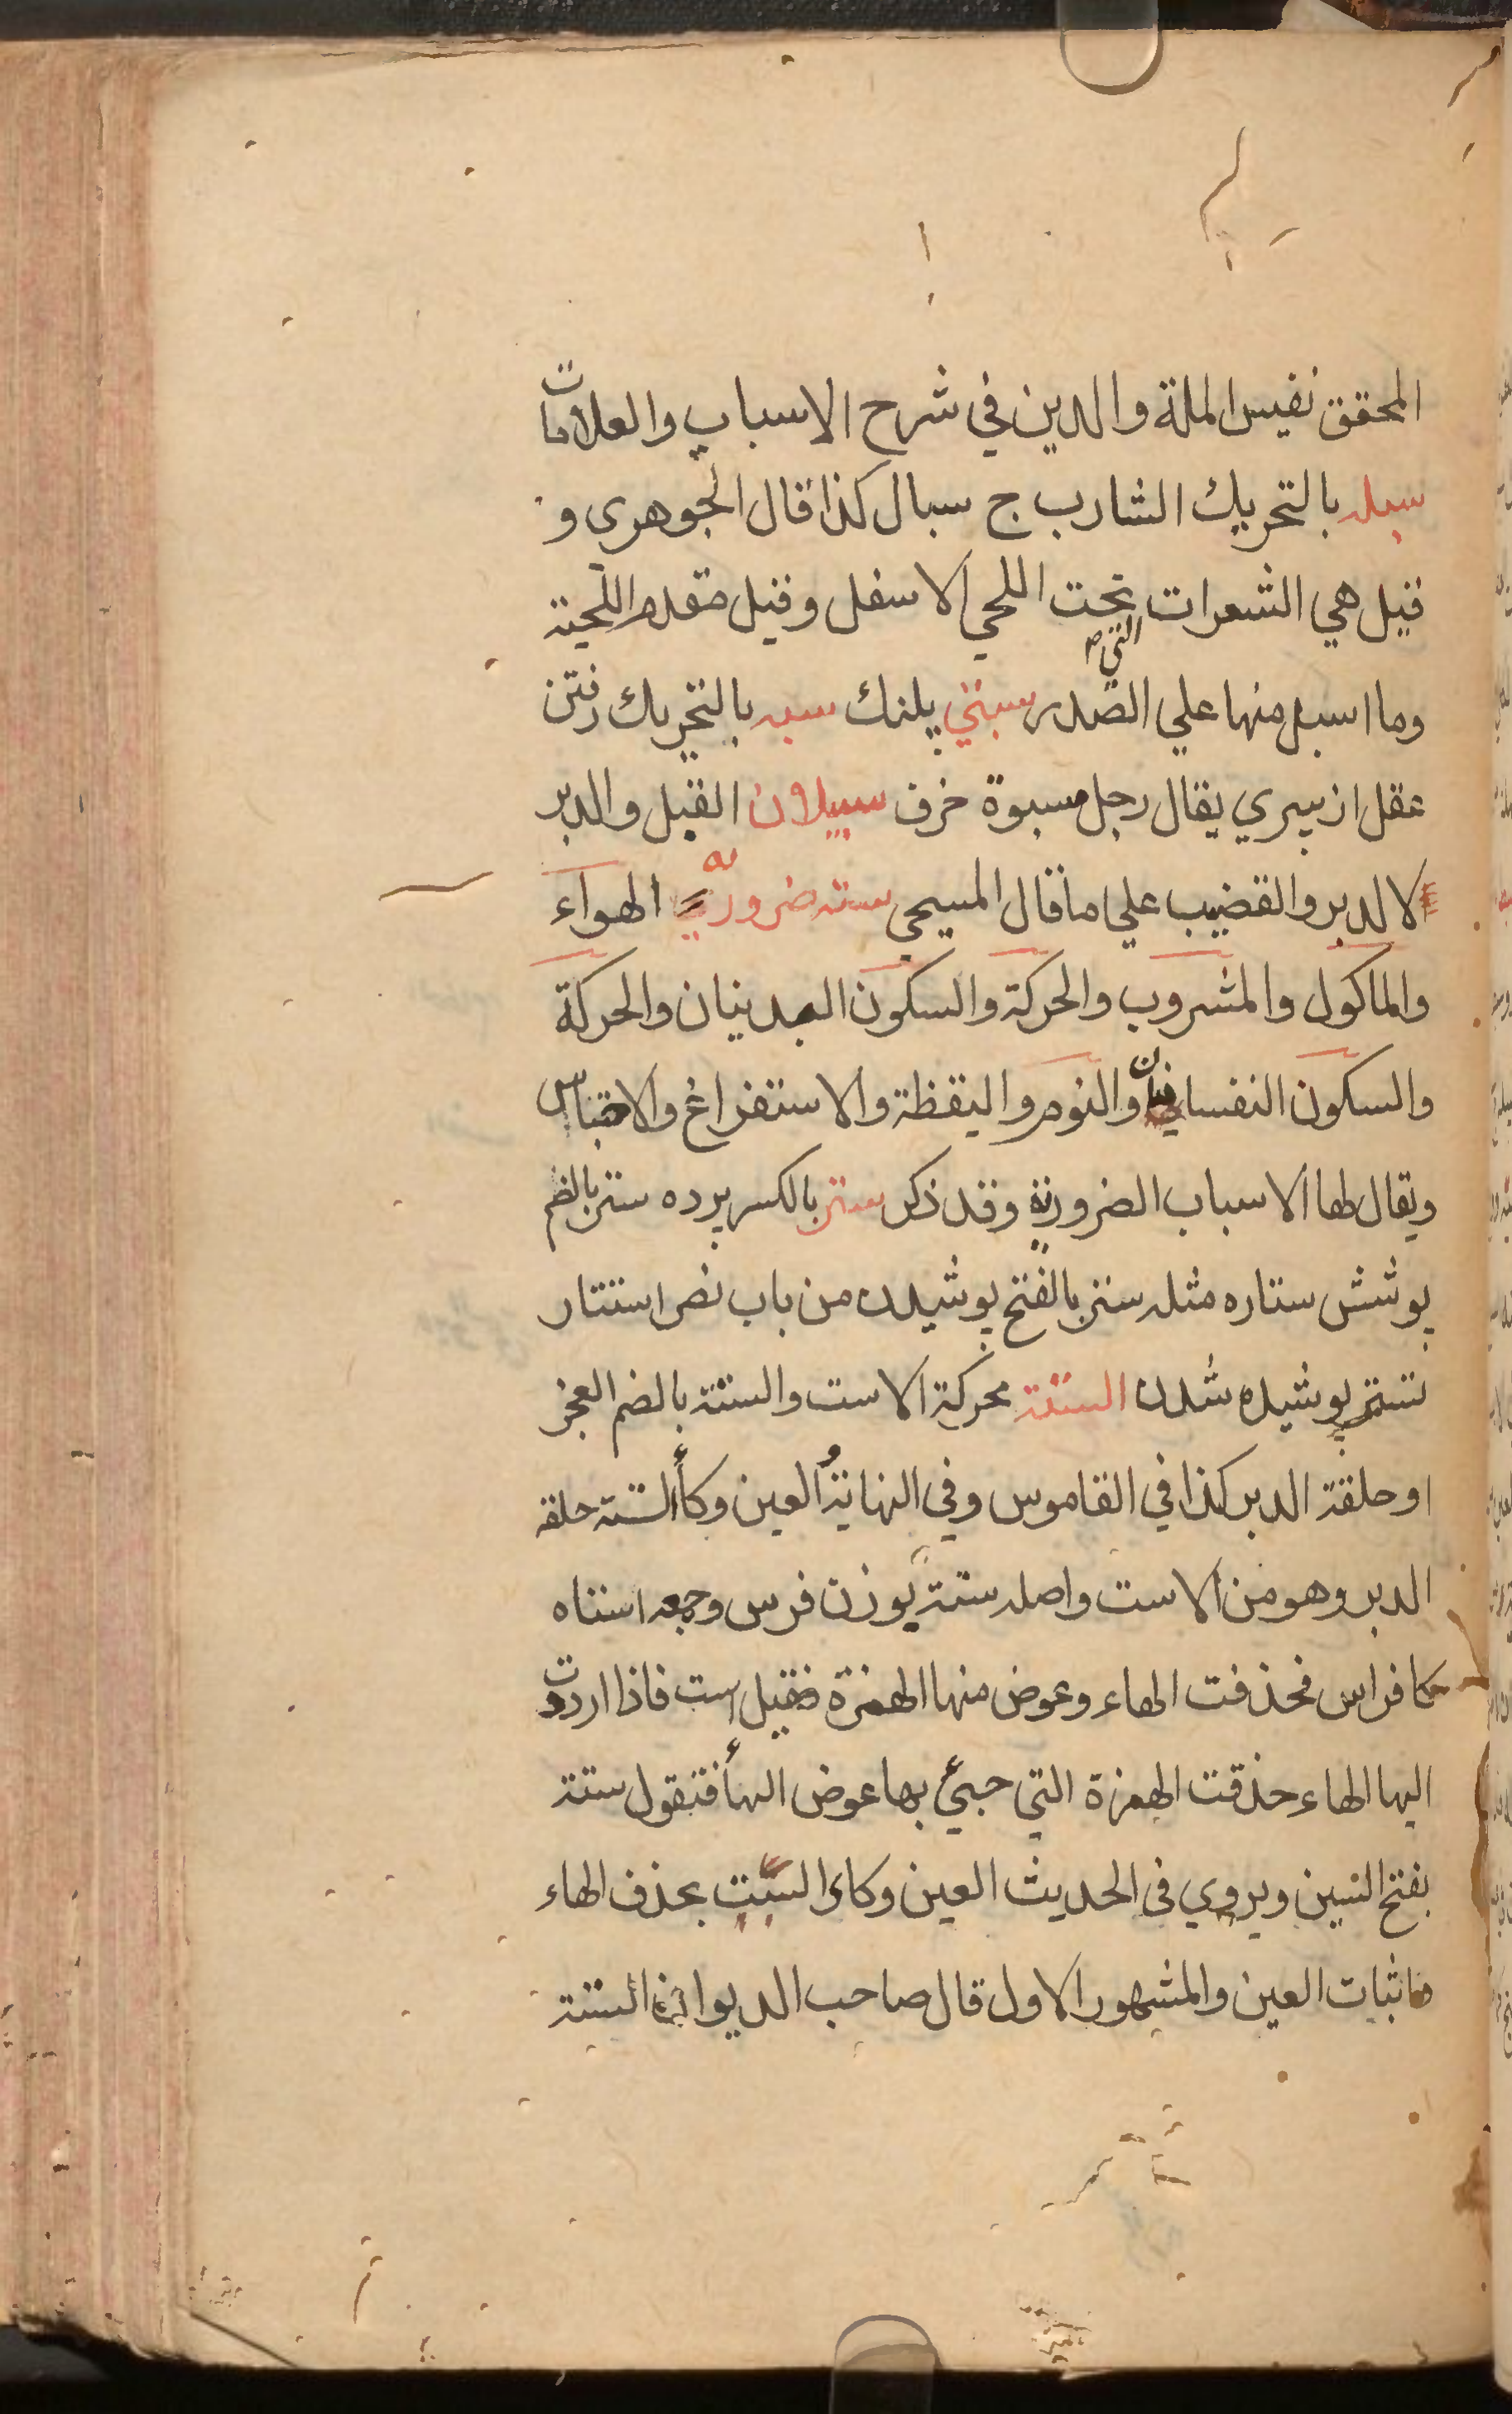 المحقق نفيس الملة والدين في شرح الاسباب والعلامات
سبله بالتحريك الشارب ج سبال كذا قال الجوهرى و
قيل هي الشعرات التي تحت اللحي الاسفل وقيل مقدم اللحية
وما اسبل منها علي الصدر سبنتي پلنك سبه بالتحريك رفتن
عقل از پيري يقال رجل مسبوة خرف سبيلان القبل والدبر
لا الدبر والقضيب علي ما قال المسيحي سته ضروريه الهوآء
والماكول والمشروب والحركة والسكون البدنيان والحركة
والسكون النفسانيان والنوم واليقظة والاستفراغ والاحتباس
ويقال لها الاسباب الضرورية وقد ذكر ستر بالكسر پرده ستر بالضم
پوشش ستاره مثله ستر بالفتح پوشيدن من باب نصر استتار
تستر پوشيده شدن الستة محركة الاست والستة بالضم العجز
او حلقة الدبر كذا في القاموس وفي النهاية العين وكاء السته حلقه
الدبر وهو من الاست واصله ستة بوزن فرس وجمعه استاه
كافراس فحذفت الهاء وعوض منها الهمزة فقيل است فاذا اردت
اليها الهاء حذفت الهمزة التي جيئ بها عوض الهاء فتقول ستة
بفتح السين ويروي في الحديث العين وكاء الست بحذف الهاء
واثبات العين والمشهور الاول قال صاحب الديوان الستة